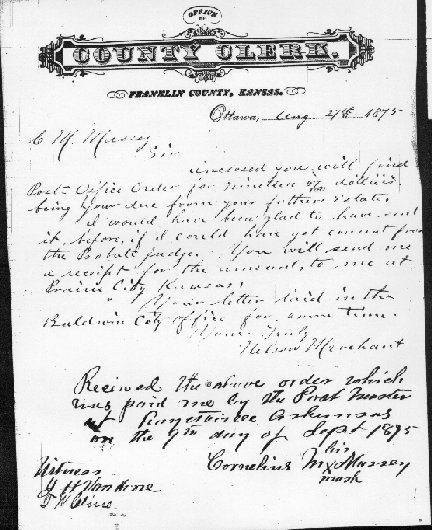 OFFICE
OF
COUNTY CLERK.
FRANKLIN COUNTY, KANSAS.
Ottawa, Aug 4th 1875
C M Massey
Sir
inclosed you will find
Post-Office Order for nineteen dollars
being your due from your fathers estate
I would have been glad to have sent
it before, if I could have got consent from
the Probate judge. You will send me
a receipt for the amount, to me at
Prairie City Kansas.
Your letter laid in the
Baldwin City office for some time.
Yours Truly
Nelson Merchant
Recieved the above order which
was paid me by the Post Master
at Arkansas
on the 9th day of Sept 1875
his
Cornelius M x Massey
mark
Witness